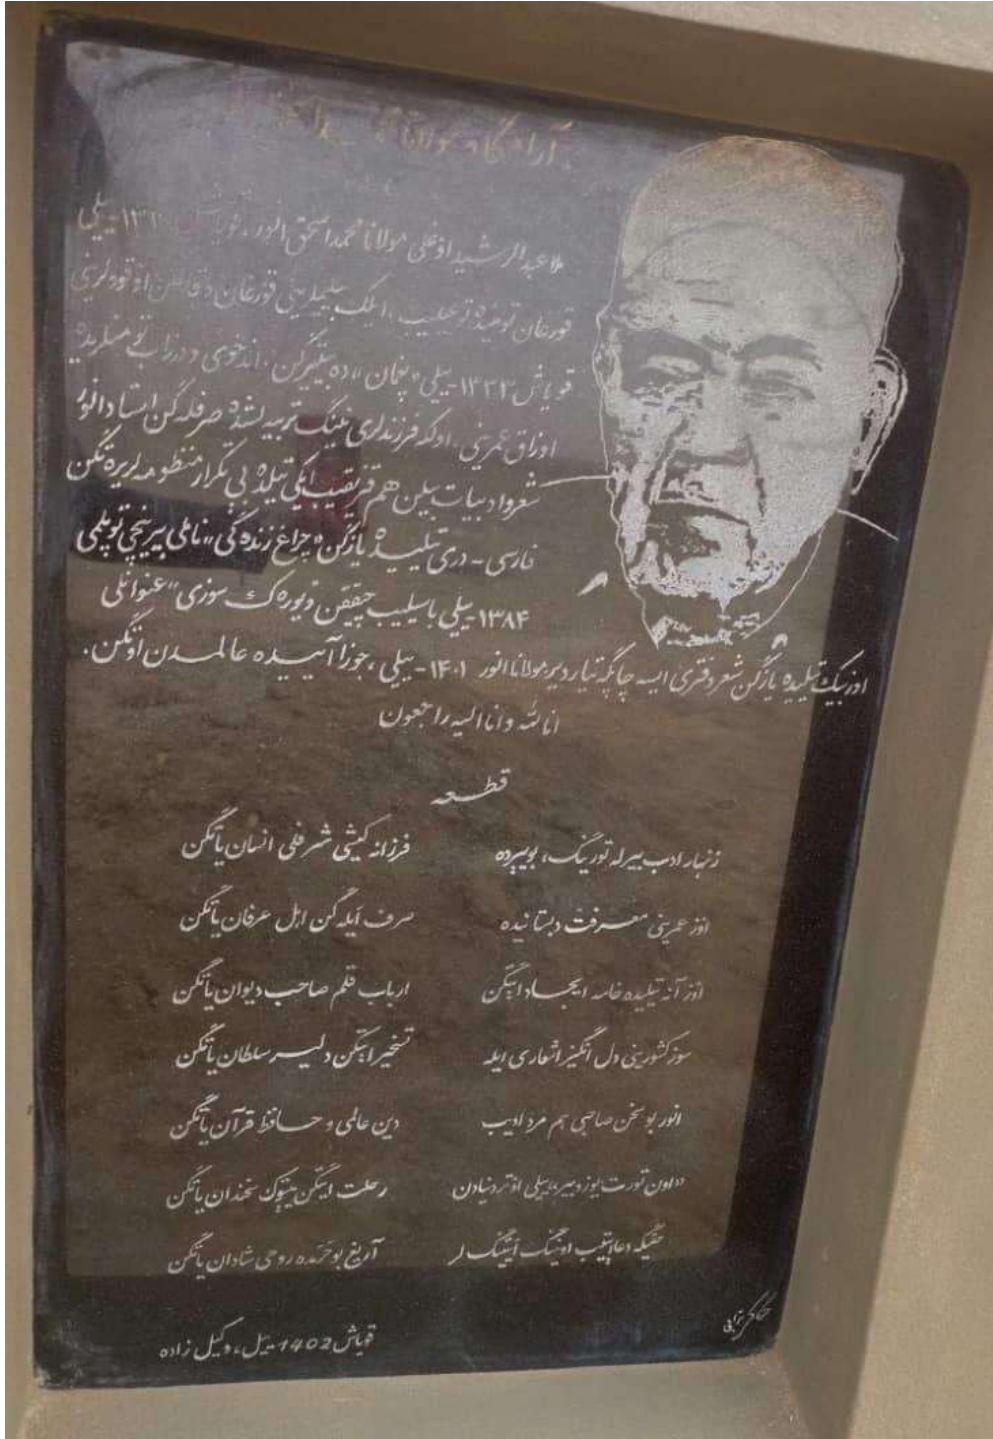 آرامگاه مولانا
«عبدالرشید اوغلی مولانا محمد اسحق انور، قویاش ییلی
قورغان تومنیده توغیلیب، ایلک بیلیمینی قورغان
قویاش ۱۳۳۳-ییلی «پغمان» ده بیتیرگن. اندخوی و درزاب تومنلریده
اوزاق عمرینی، اولکه فرزندلری نینگ تربیه سیگه صرفله گن استاد انور
شعر و ادبیات بیلن هم قیزیقیب ایکی تیلده بی تکرار منظومه لر یره تگن
فارسی - دری تیلیده یازگن «چراغ زنده گی» ناملی بیرینچی توپلمی
۱۳۸۴-ییلی باسیلیب چیققن و «یوره ک سوزی» عنوانلی
اوزبیک تیلیده یازگن شعر دفتری ایسه چاپگه تیار دیر. مولانا انور ۱۴۰۱-ییلی، جوزا آییده عالمدن اوتگن.
انا لله و انا الیه راجعون
قطعه
زنبار ادب بیرله تورینگ، بو ییرده فرزانه کیشی شرفلی انسان یاتگن
اوز عمرینی معرفت دبستانیده سرف أیله گن اهل عرفان یاتگن
اوز آنه تیلیده خامه ایجاد ایتگن ارباب قلم صاحب دیوان یاتگن
سوز کشورینی دل انگیز اشعاری ایله تسخیر ایتگن دلبر سلطان یاتگن
انور بو سخن صاحبی هم مرد ادیب دین عالمی و حافظ قرآن یاتگن
«اون تورت یوز و بیر» ییلی اوتر دنیادن رحلت ایتگن بیتوک سخندان یاتگن
حقیگه دعا ایتیب اونینگ أیتینگ لر آریغ بو حرمده روحی شادان یاتگن
قویاش 1402-ییل، وکیل زاده